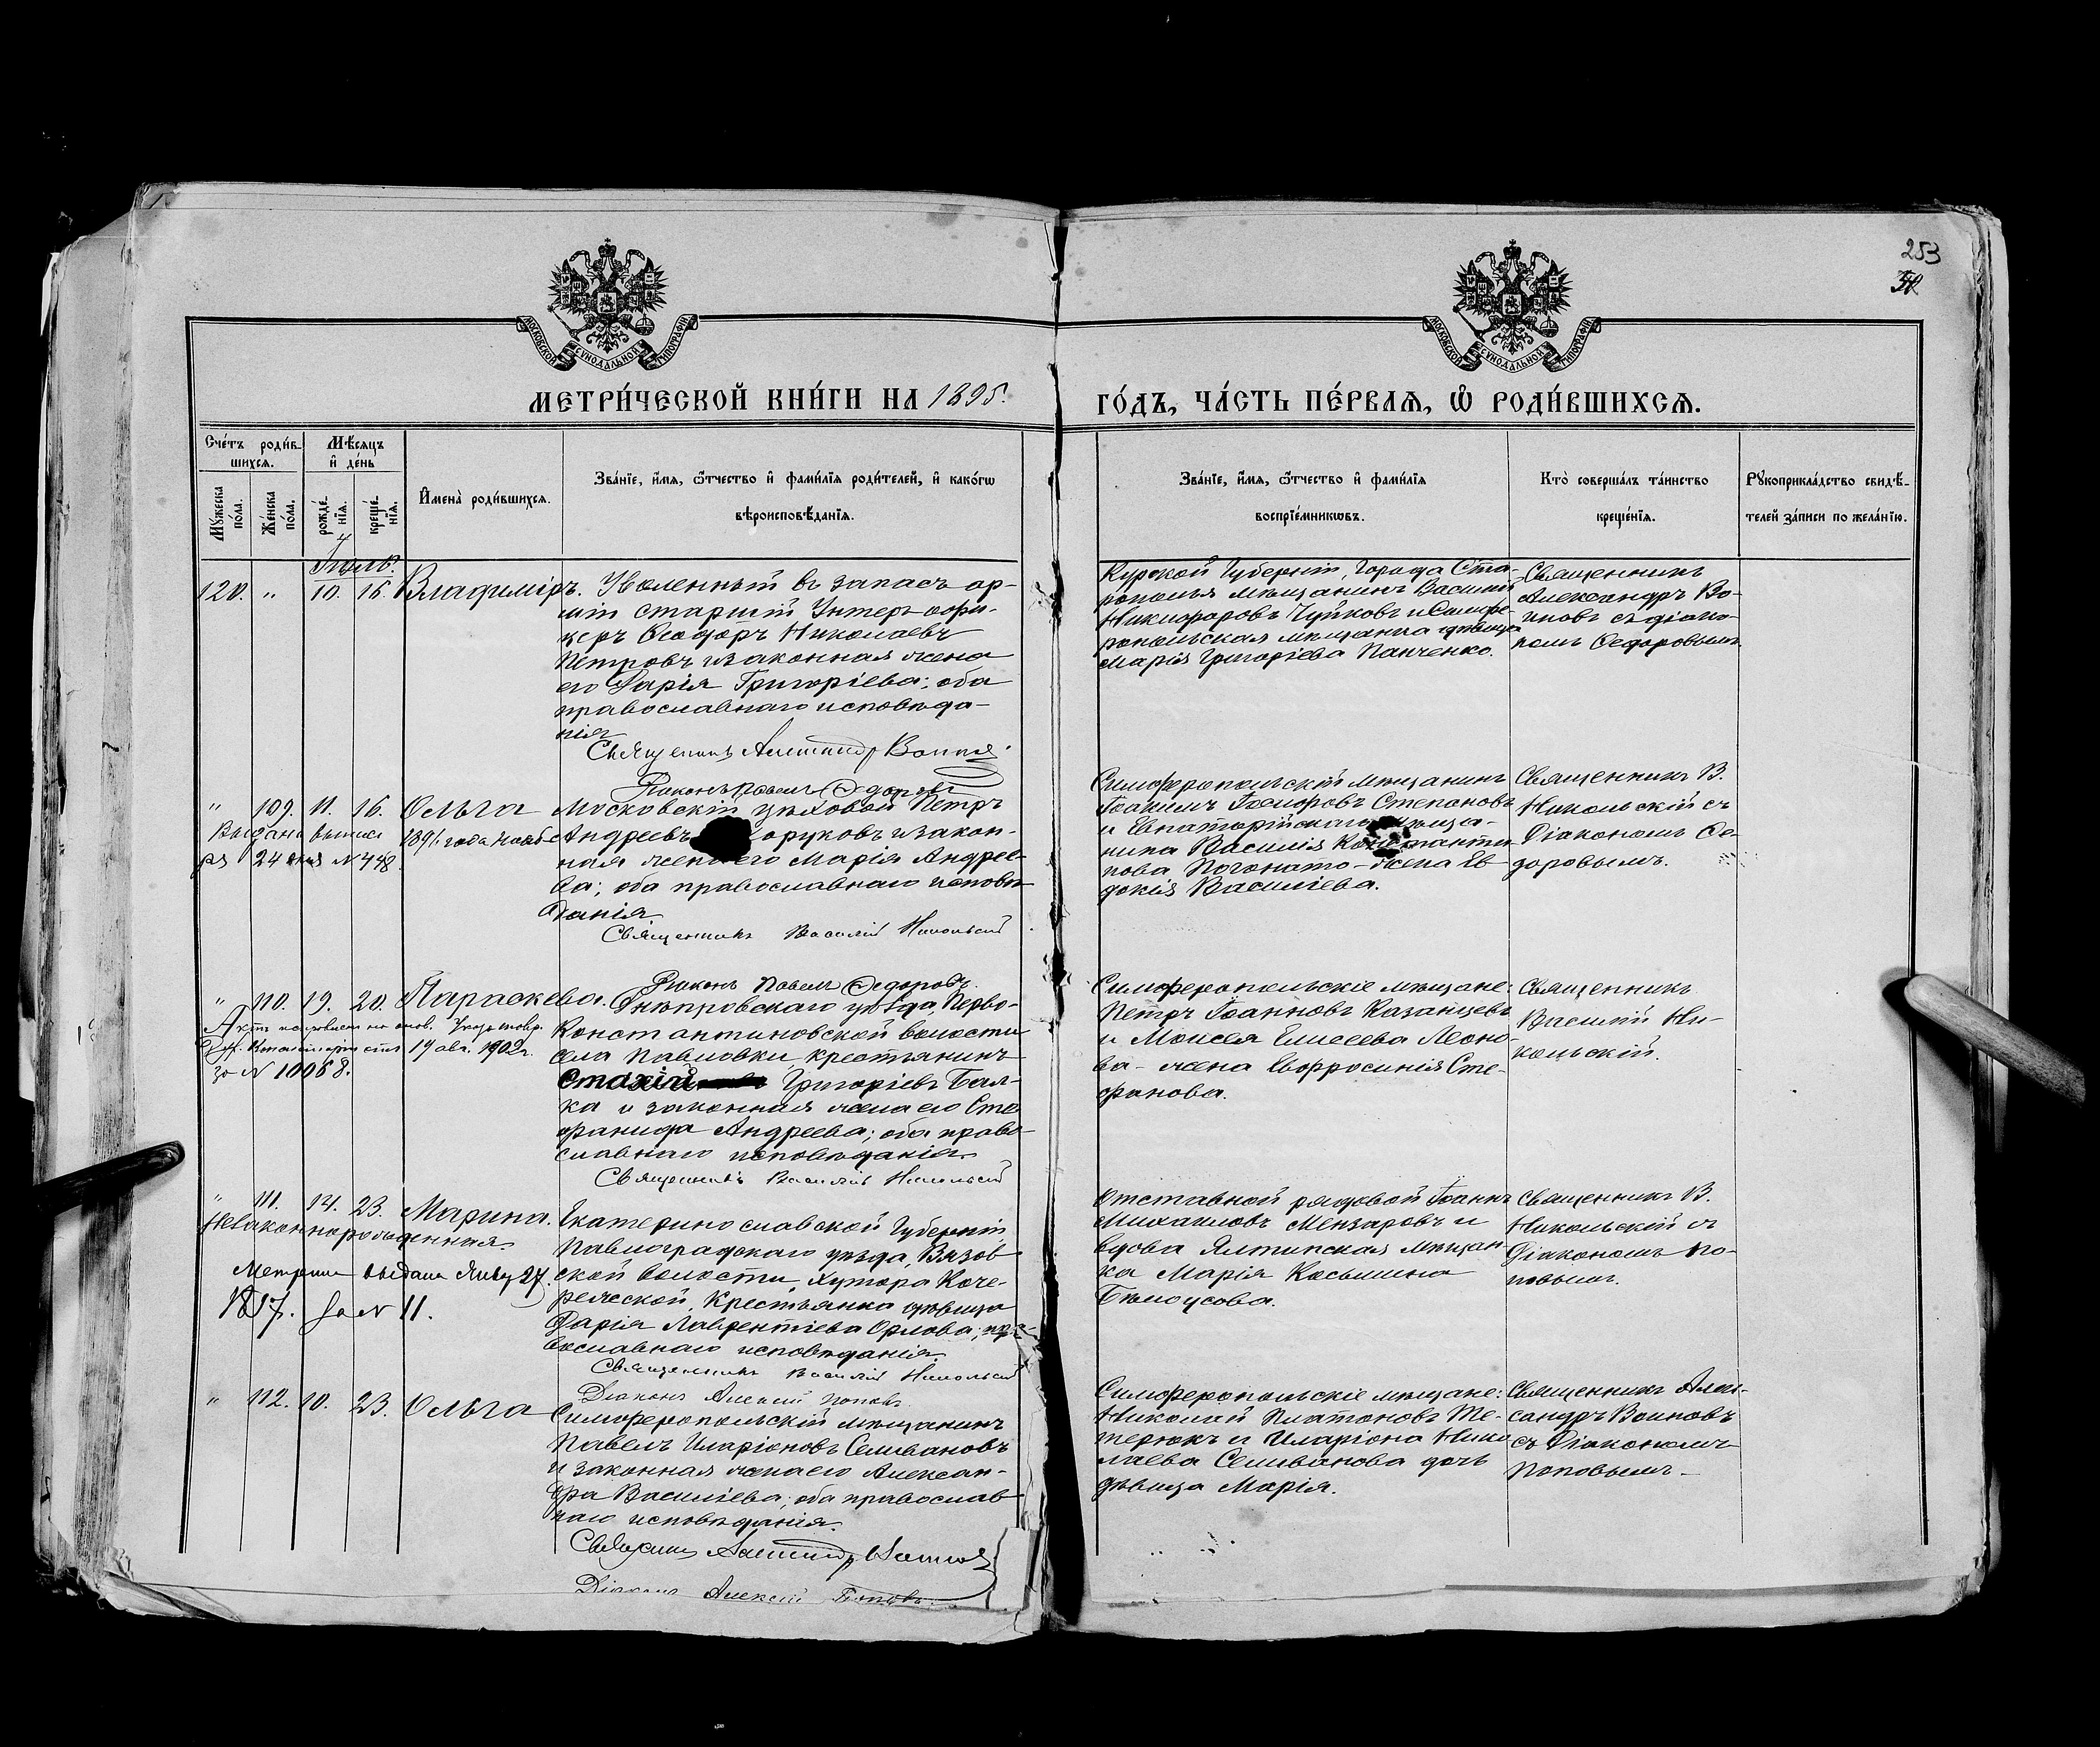 253
МОСКОВСКОЙ СѴНОДАЛЬНОЙ ТИПОГРАФІИ
МОСКОВСКОЙ СѴНОДАЛЬНОЙ ТИПОГРАФІИ
МЕТРИ́ЧЕСКОЙ КНИ́ГИ НА 1895.
ГО́ДЪ, ЧА́СТЬ ПЕ́РВАѦ, Ѡ РОДИ́ВШИХСѦ.
Сче́тъ роди́в-
шихся.
Мѣ́сяцъ
и҆ де́нь
Му́жеска
по́ла.
Же́нска
по́ла.
рожде́-
нїя.
креще́-
нїя.
И҆мена̀ роди́вшихся.
Зва́нїе, и҆́мя, ѻ҆́тчество и҆ фами́лїя роди́телей, и҆ како́гѡ
вѣроисповѣ́данїя.
Зва́нїе, и҆́мя, ѻ҆́тчество и҆ фами́лїя
воспрїе́мникѡвъ.
Кто̀ соверша́лъ та́инство
креще́нїя.
Рꙋкоприкла́дство свидѣ́-
телей за́писи по жела́нїю.
Іюль.
120. " 10. 16. Владиміръ.
Уволенный въ запасъ ар-
міи старшій Унтеръ офи-
церъ Ѳеодоръ Николаевъ
Петровъ и законная жена
его Дарія Григоріева; оба
православнаго исповѣда-
нія
Священникъ Александръ Воинов
Діаконъ Павелъ Ѳедоровъ
Курской Губерніи, Города Ста-
рополья мѣщанинъ Василій
Никифоровъ Чуйковъ и Симфе-
ропольская мѣщанка дѣвица
Марія Григоріева Панченко.
Священникъ
Александръ Во-
иновъ съ діако-
помъ Ѳедоровымъ.
" 109. 11. 16. Ольга
Выданъ выпись 1891 года Нояб-
ря 24 дня № 448
Московскій цѣховой Петръ
Андреевъ оруковъ и закон-
ная жена его Марія Андрее-
ва; оба православнаго исповѣ-
данія
Священникъ Василій Никольскій
Діаконъ Павелъ Ѳедоровъ.
Симферопольскій мѣщанинъ
Іоакимъ Степановъ
и Евпаторійскаго мѣща-
нина Василія Константи-
нова Погонато - жена Ев-
докія Василіева.
Священникъ В.
Никольскій съ
Діакономъ Ѳе-
доровымъ.
" 110. 19. 20. Параскева.
Актъ исправленъ на основ. Указа Тавр.
Дух. Консисторіи отъ 19 авг. 1902 г.
за № 10068.
Днѣпровскаго уѣзда, Перво-
Константиновской волости
села Павловки, крестьянинъ
Стахій Григоріевъ Бал-
ка и законная жена его Сте-
фанида Андреева; оба право-
славнаго исповѣданія.
Священникъ Василій Никольскій
Симферопольскіе мѣщане:
Петръ Іоанновъ Казанцевъ
и Моисея Елисеева Леоно-
ва - жена Евфросинія Сте-
фанова.
Священникъ
Василій Ни-
кольскій.
" 111. 14. 23. Марина.
Незаконнорожденная.
Метрика выдана Янв. 27.
1817. За № 11.
Екатеринославской Губерніи
Павлоградскаго уѣзда, Вязов-
ской волости, Хутора Коче-
режской, Крестьянка дѣвица
Дарія Лаврентіева Орлова; пра-
вославнаго исповѣданія.
Священникъ Василій Никольскій
Діаконъ Алексій Поповъ
Отставной рядовой Іоаннъ
Михаиловъ Мензаровъ и
вдова Ялтинская мѣщан-
ка Марія Косьмина
Бѣлоусова.
Священникъ В.
Никольскій съ
Діакономъ По-
повымъ.
" 112. 10. 23. Ольга
Симферопольскій мѣщанинъ
Павелъ Иларіоновъ Селивановъ
и законная жена его Алексан-
дра Василіева; оба православ-
наго исповѣданія.
Священникъ Александръ Воинов
Діаконъ Алексій Поповъ.
Симферопольскіе мѣщане:
Николай Платоновъ Те-
терюкъ и Иларіона Нико-
лаева Селиванова дочь
дѣвица Марія.
Священникъ Алек-
сандръ Воиновъ
съ Діакономъ
Поповымъ.